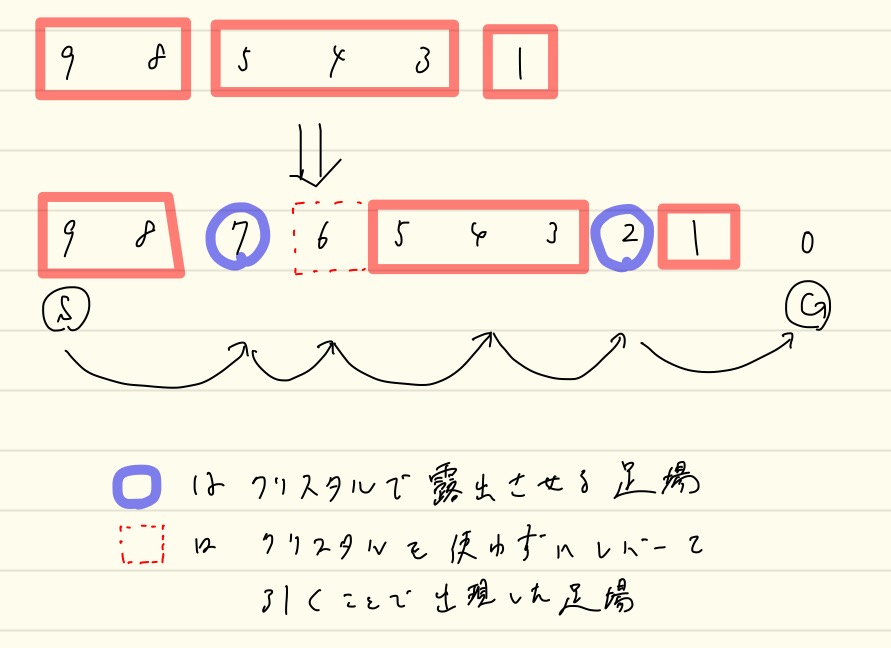 9 8 5 4 3 1
9 8 7 6 5 4 3 2 1 0
S G
は クリスタルで 露出させる 足場
は クリスタルを 使わずにレバーを
引くことで 出現した 足場